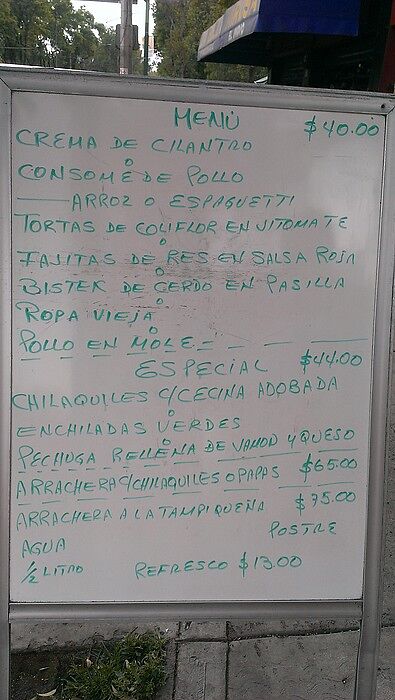 MENÚ $40.00
CREMA DE CILANTRO
O
CONSOMÉ DE POLLO
ARROZ O ESPAGUETTI
TORTAS DE COLIFLOR EN JITOMATE
O
FAJITAS DE RES EN SALSA ROJA
O
BISTEK DE CERDO EN PASILLA
O
ROPA VIEJA
O
POLLO EN MOLE
ESPECIAL $44.00
CHILAQUILES C/CECINA ADOBADA
O
ENCHILADAS VERDES
O
PECHUGA RELLENA DE JAMON Y QUESO
ARRACHERA C/CHILAQUILES O PAPAS $65.00
ARRACHERA A LA TAMPIQUEÑA $75.00
POSTRE
AGUA
1/2 LITRO REFRESCO $13.00